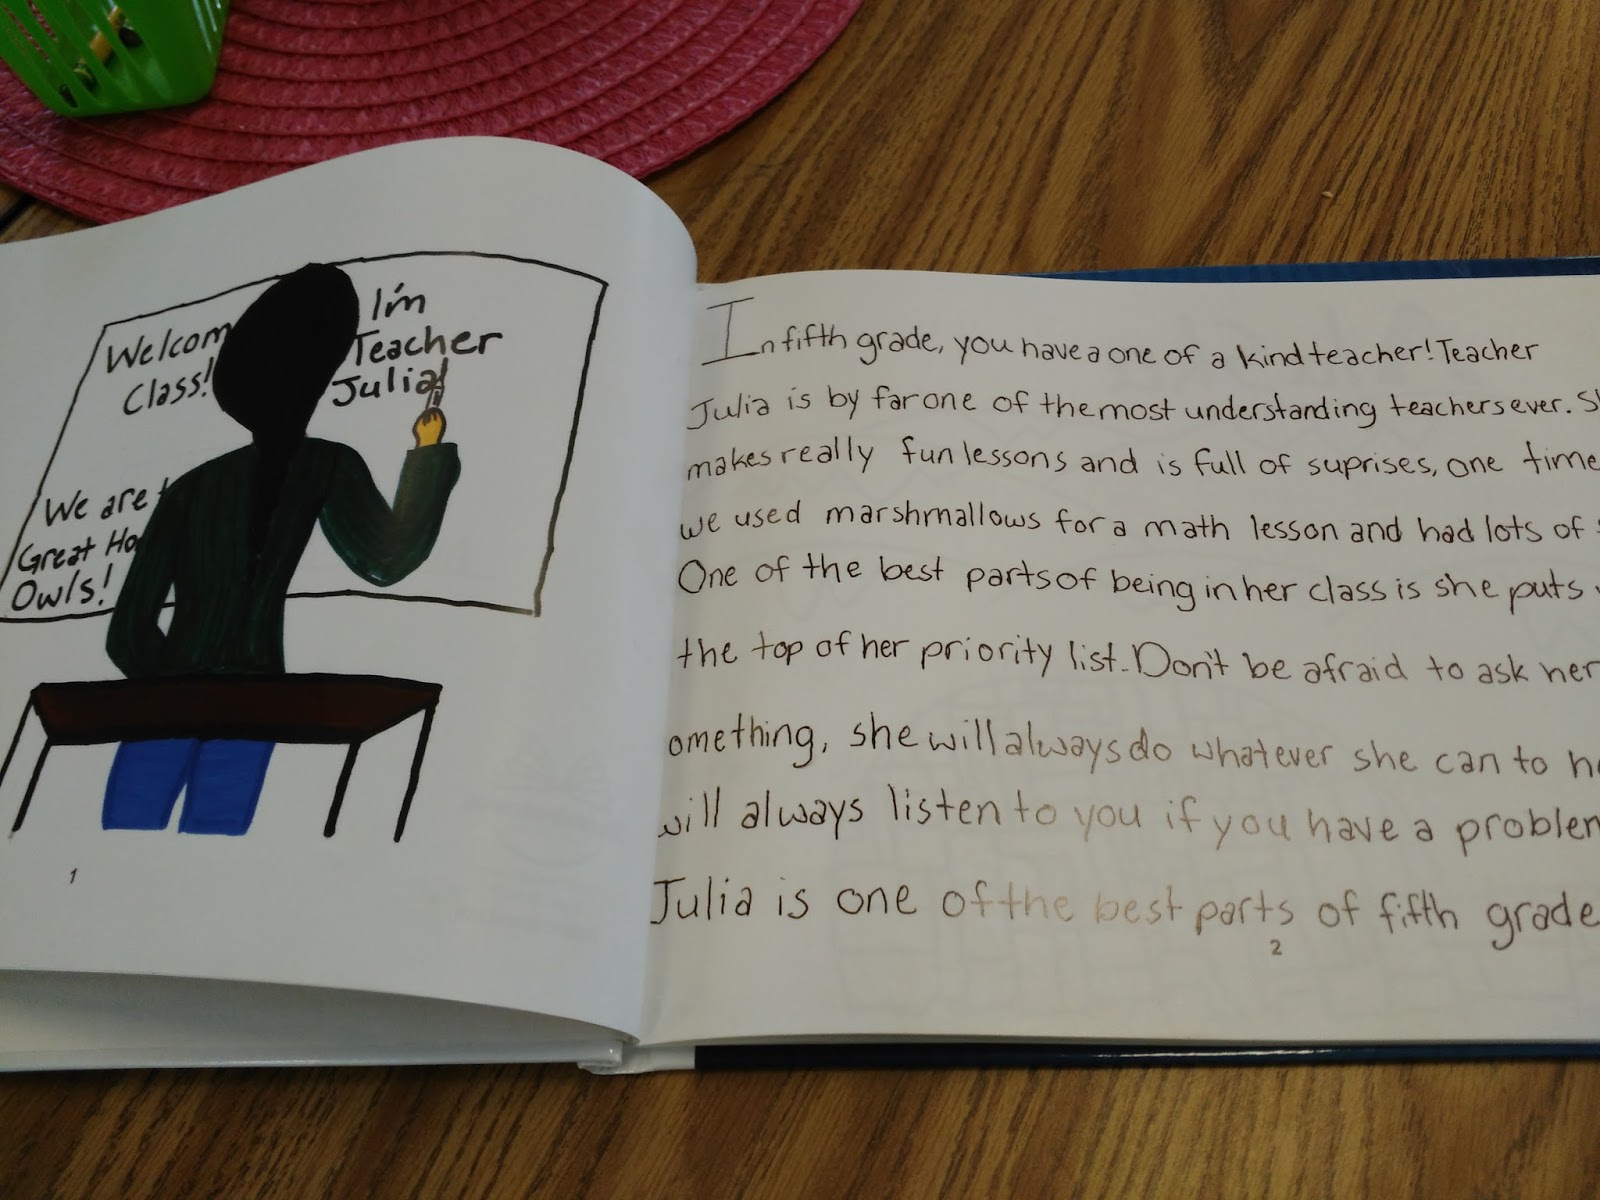 Welcom
Class!
I'm
Teacher
Julia!
We are
Great Ho
Owls!
1
In fifth grade, you have a one of a kind teacher! Teacher
Julia is by far one of the most understanding teachers ever.
makes really fun lessons and is full of suprises, one time
we used marshmallows for a math lesson and had lots of
One of the best parts of being in her class is she puts
the top of her priority list. Don't be afraid to ask her
omething, she will always do whatever she can to
will always listen to you if you have a problem
Julia is one of the best parts of fifth grade
2